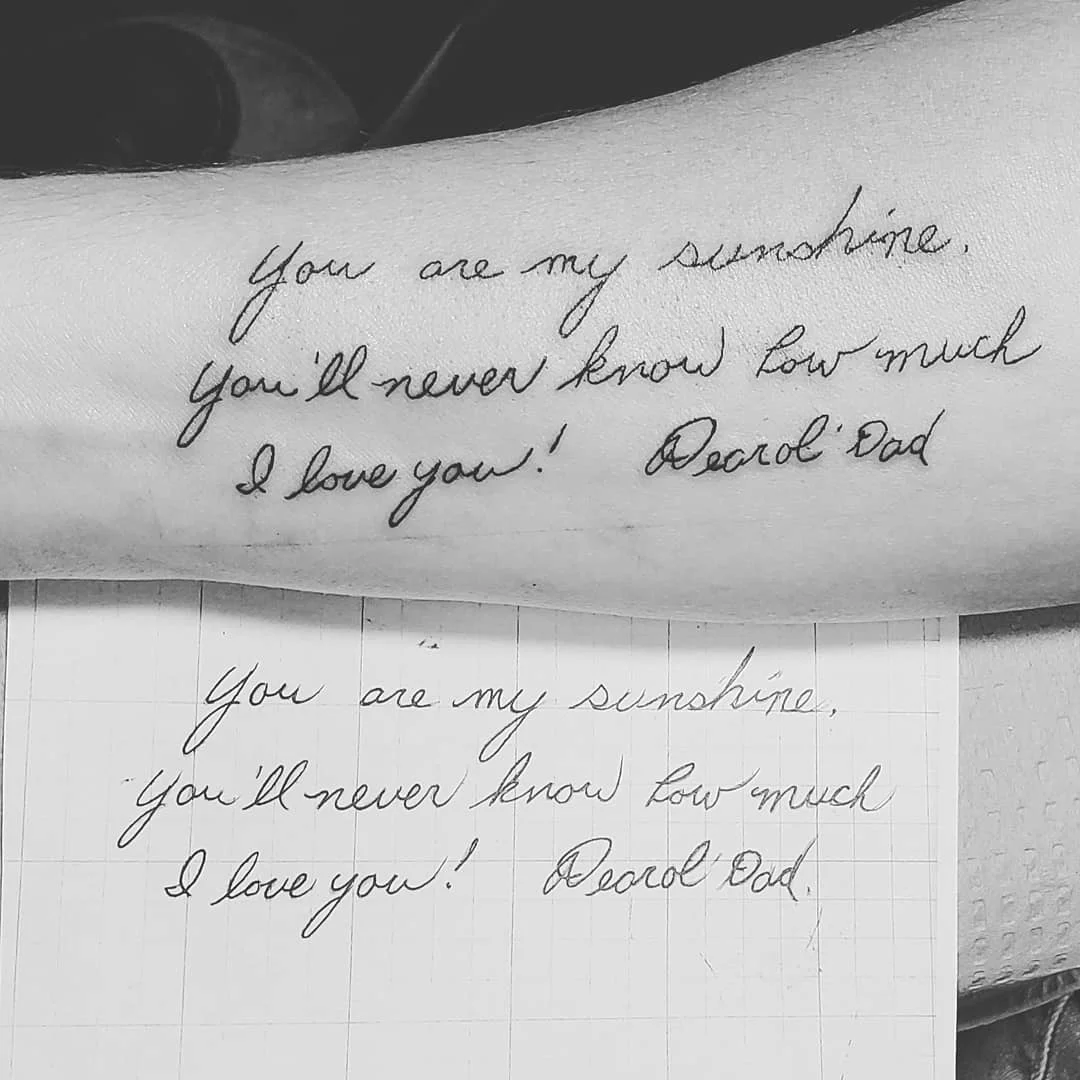 You are my sunshine.
You'll never know how much
I love you! Dearol' Dad
You are my sunshine.
You'll never know how much
I love you! Dearol' Dad.